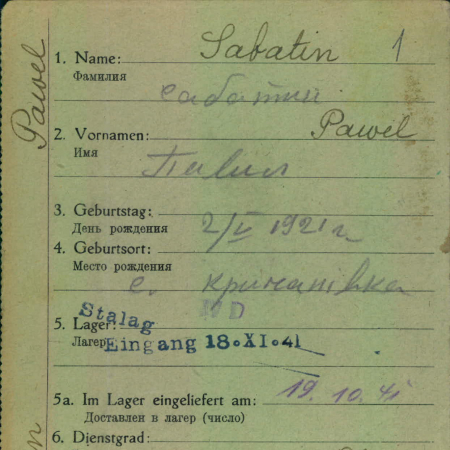 Pawel
1. Name: Sabatin 1
Фамилия
сабатин
2. Vornamen: Pawel
Имя
Павил
3. Geburtstag:
День рождения 2/V 1921 г
4. Geburtsort:
Место рождения
с. криматівка
Stalag IV D
5. Lager:
Лагер Eingang 18.XI.41
19.10.41
5a. Im Lager eingeliefert am:
Доставлен в лагер (число)
6. Dienstgrad: